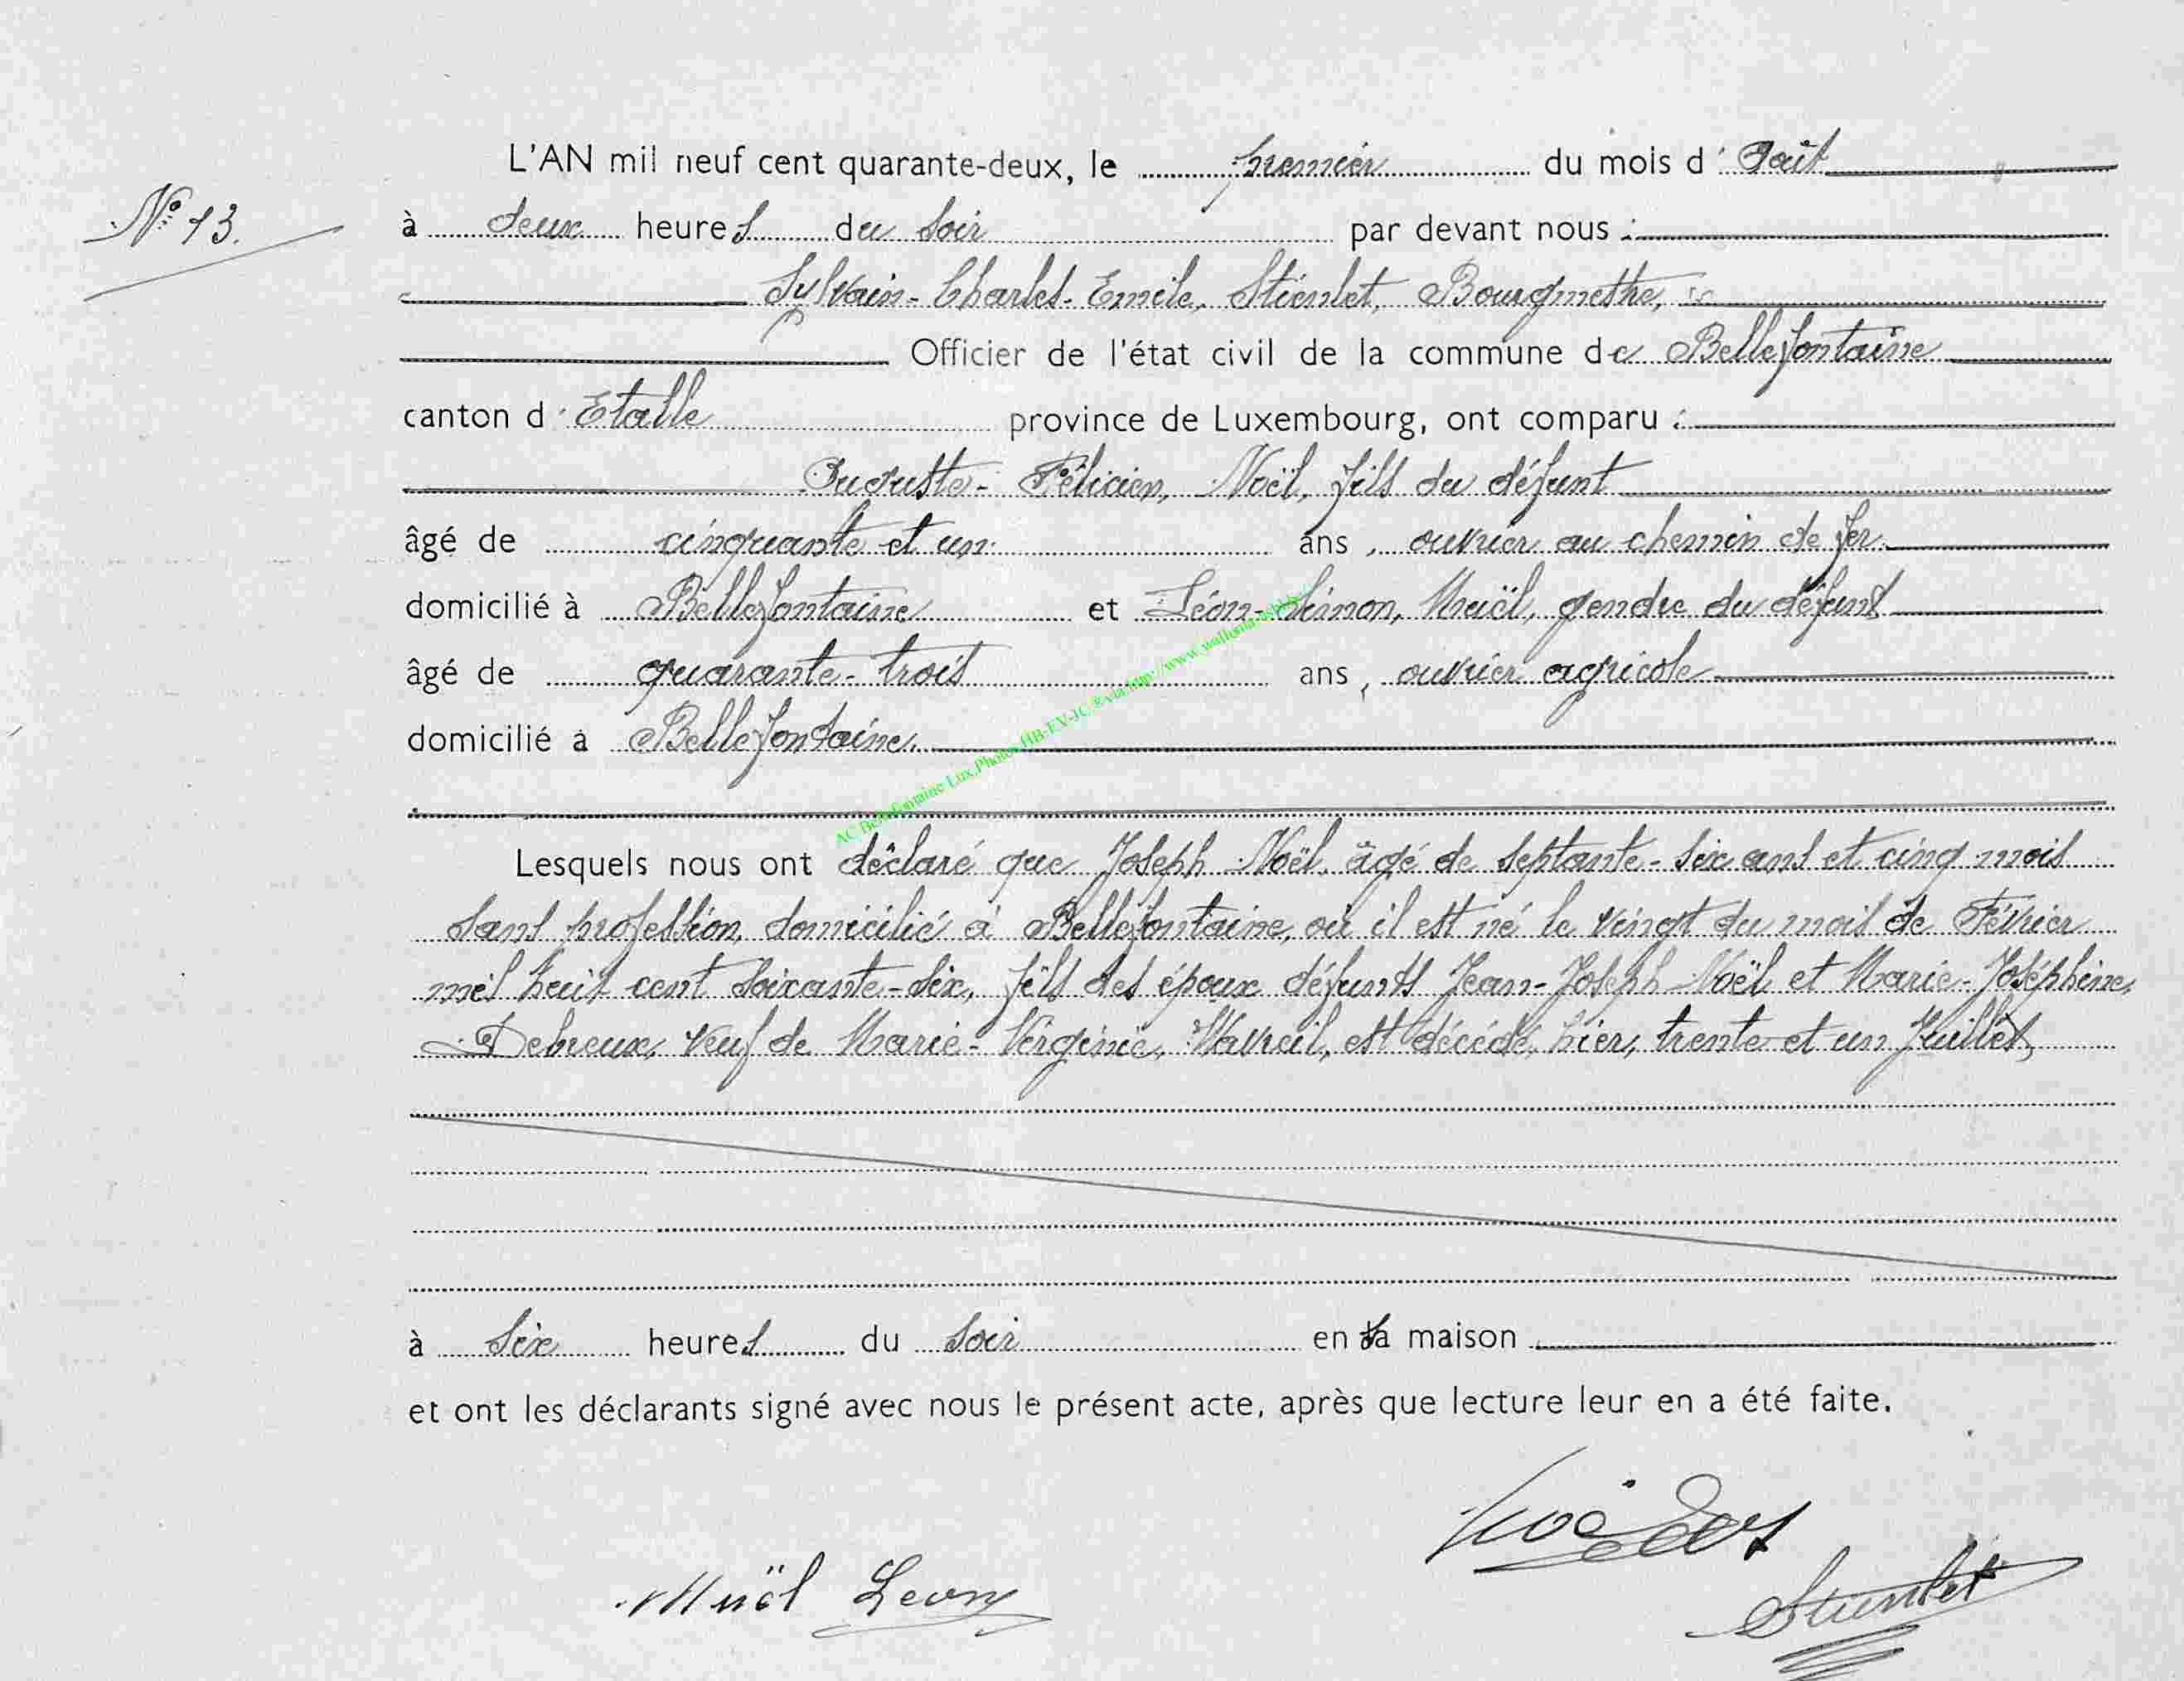 L'AN mil neuf cent quarante-deux, le premier du mois d'Août
N° 13. à deux heures du soir par devant nous :
Sylvain-Charles-Emile, Stiénlet, Bourgmestre,
Officier de l'état civil de la commune de Bellefontaine
canton d'Etalle province de Luxembourg, ont comparu :
Auguste-Félicien, Noël, fils du défunt
âgé de cinquante et un ans, ouvrier au chemin de fer
domicilié à Bellefontaine et Léon-Simon, Muël, gendre du défunt
âgé de quarante-trois ans, ouvrier agricole
domicilié à Bellefontaine.
AC Bellefontaine Lux,Photos HB-EV-JC
Lesquels nous ont déclaré que Joseph Noël, âgé de septante-six ans et cinq mois
sans profession, domicilié à Bellefontaine, où il est né le vingt du mois de Février
mil huit cent soixante-six, fils des époux défunts Jean-Joseph Noël et Marie-Joséphine,
Debreux, veuf de Marie-Virginie, Wavreil, est décédé, hier, trente et un Juillet,
à six heures du soir en sa maison
et ont les déclarants signé avec nous le présent acte, après que lecture leur en a été faite.
Muël Leon
Stiénlet